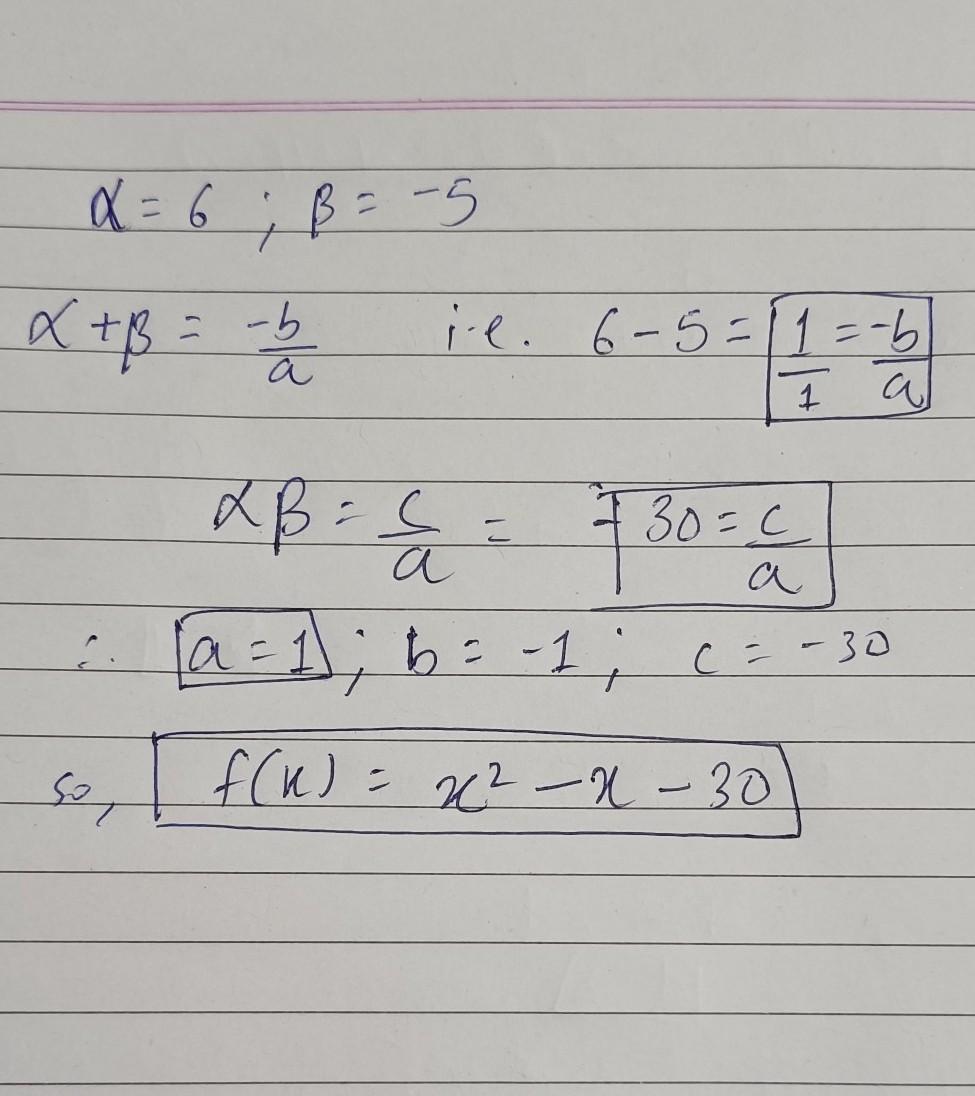 α = 6 ; β = -5
α + β = -b/a i.e. 6 - 5 = 1/1 = -b/a
αβ = c/a = -30 = c/a
∴ a = 1 ; b = -1 ; c = -30
so, f(x) = x² - x - 30